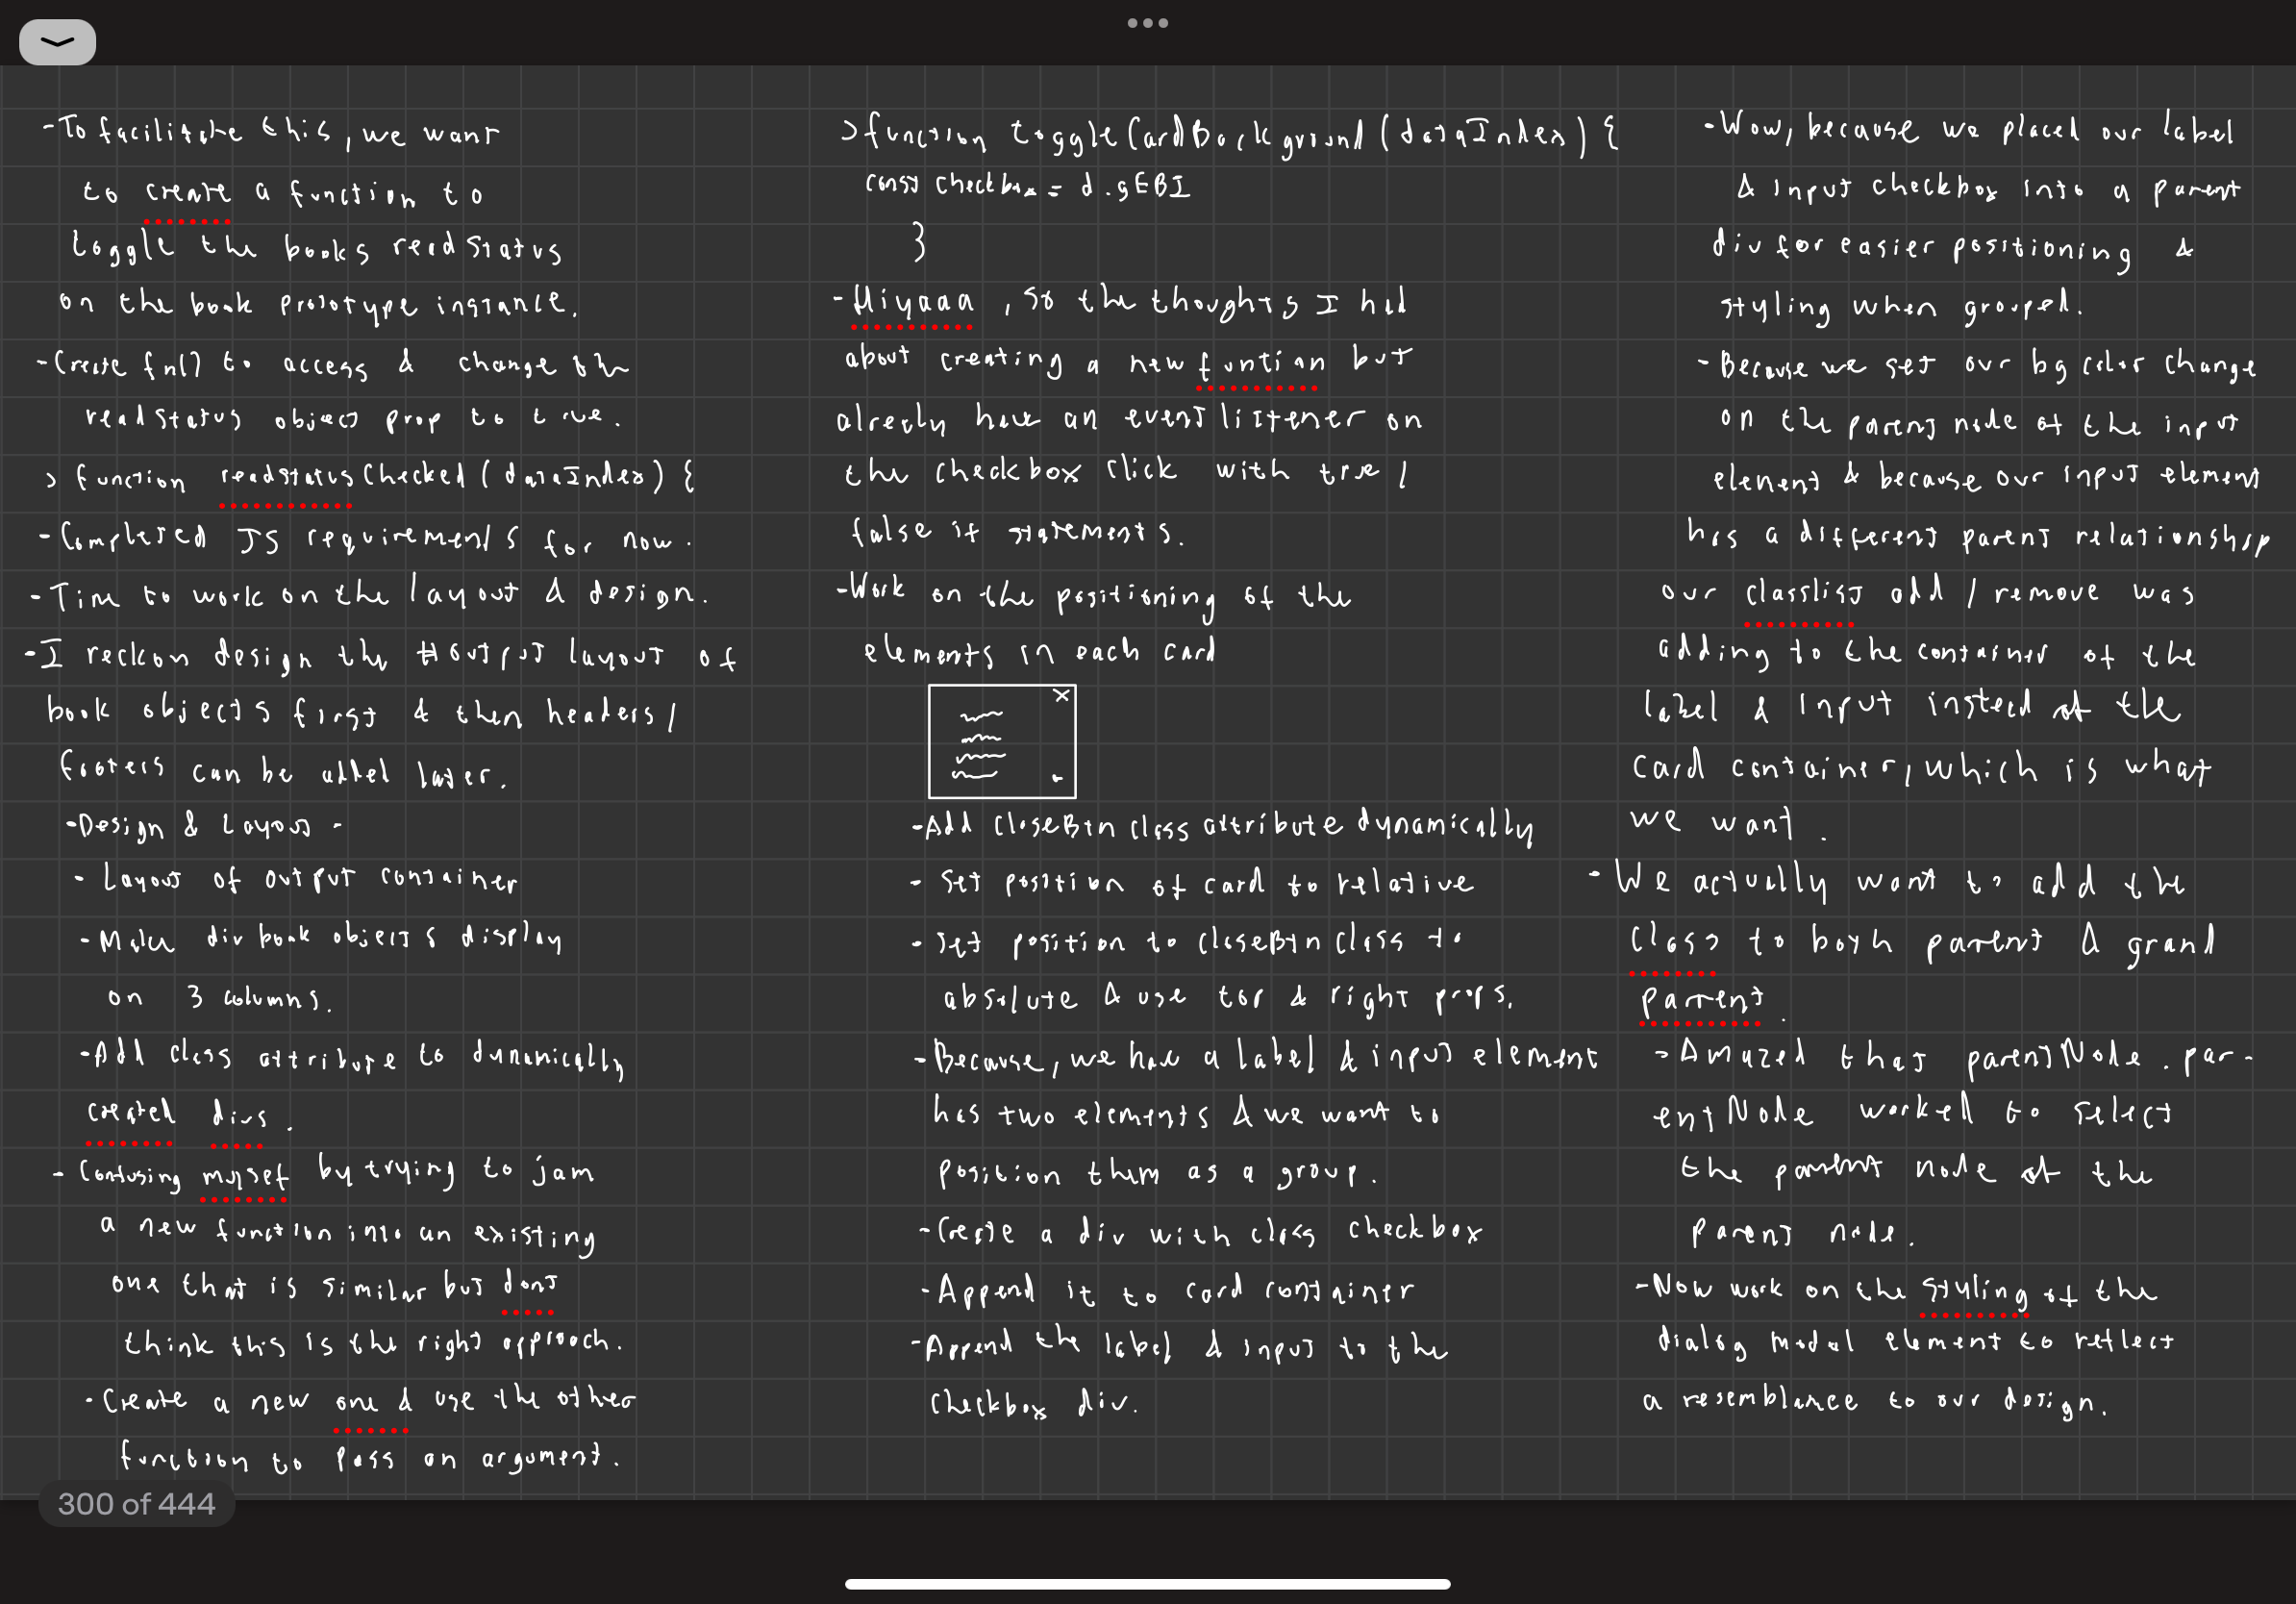 -To facilitate this, we want
to create a function to
toggle the books readStatus
on the book prototype instance.
-Create fn() to access & change the
readStatus object prop to true.
> function readstatusChecked(dataIndex) {
-Completed JS requirements for now.
-Time to work on the layout & design.
-I reckon design the output layout of
book objects first & then headers/
footers can be added later.
-Design & Layout-
- Layout of output container
-Make div book objects display
on 3 columns.
-Add class attribute to dynamically
created divs.
- Confusing myself by trying to jam
a new function into an existing
one that is similar but dont
think this is the right approach.
-Create a new one & use the other
function to pass an argument.
>function toggleCardBackground(dataIndex) {
const checkbox = d.gEBI
}
-Aiyaaa, so the thoughts I had
about creating a new funtion but
already have an event listener on
the checkbox click with true/
false if statements.
-Work on the positioning of the
elements in each card
x
-Add closeBtn class attribute dynamically
- Set position of card to relative
- Set position to closeBtn class to
absolute & use top & right props.
-Because, we have a label & input element
has two elements & we want to
position them as a group.
-Create a div with class checkbox
-Append it to card container
-Append the label & input to the
checkbox div.
-Wow, because we placed our label
& input checkbox into a parent
div for easier positioning &
styling when grouped.
-Because we set our bg color change
on the parent node of the input
element & because our input element
has a different parent relationship
our classlist add/remove was
adding to the container of the
label & input instead of the
card container, which is what
we want.
-We actually want to add the
class to both parent & grand
parrent.
-Amazed that parentNode.par-
entNode worked to select
the parent node of the
parent node.
-Now work on the styling of the
dialog modal element to reflect
a resemblance to our design.
300 of 444